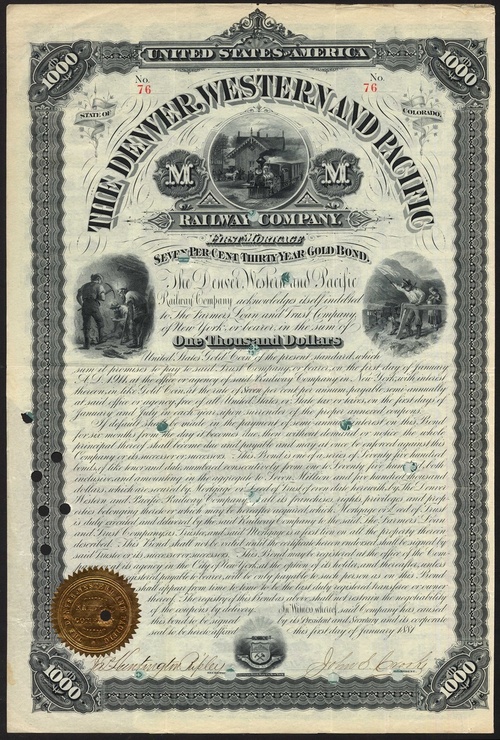 1000
1000
UNITED STATES OF AMERICA
No. 76
No. 76
STATE OF
COLORADO.
THE DENVER, WESTERN AND PACIFIC
M
M
RAILWAY COMPANY
FIRST MORTGAGE
SEVEN PER CENT THIRTY YEAR GOLD BOND.
The Denver Western and Pacific
Railway Company acknowledges itself indebted
to The Farmers Loan and Trust Company
of New York or bearer, in the sum of
One Thousand Dollars
United States Gold Coin of the present standard, which
sum it promises to pay to said Trust Company, or bearer, on the first day of January
A.D. 1911, at the office or agency of said Railway Company in New York, with interest
thereon, in like Gold Coin, at the rate of seven per cent per annum, payable semi-annually
at said office or agency, free of all United States, or State tax or laws, on the first days of
January and July in each year, upon surrender of the proper annexed coupons.
If default shall be made in the payment of semi-annual interest on this Bond
for six months from the day it becomes due, then without demand or notice the whole
principal thereof shall become due and payable and may at once be enforced against this
Company or its successor or successors. This Bond is one of a series of Seventy five hundred
bonds, of like tenor and date, numbered consecutively from one to Seventy five hundred, both
inclusive, and amounting in the aggregate to Seven Million and five hundred thousand
dollars, which are secured by Mortgage or Deed of Trust of even date herewith, by The Denver
Western and Pacific Railway Company, of all its franchises, rights, privileges and prop-
erties belonging thereto or which may be hereafter acquired, which Mortgage or Deed of Trust
is duly executed and delivered by the said Railway Company to the said, The Farmers Loan
and Trust Company, as Trustee, and said Mortgage is a first lien on all the property therein
described. This Bond shall not be valid until the certificate endorsed and shall be signed by
said Trustee or its successor or successors. This Bond may be registered at the office of the Com-
pany or its agency in the City of New York, at the option of its holder, and thereafter, unless
registered payable to bearer, will be only payable to such person as on this
shall appear from time to time to be the last duly registered transferee or owner
thereof. The registry of this Bond as above shall not restrain the negotiability
of the coupons by delivery. In Witness whereof, said Company has caused
this bond to be signed by its President and Secretary and its corporate
seal to be hereto affixed this first day of January 1881.
1000
1000